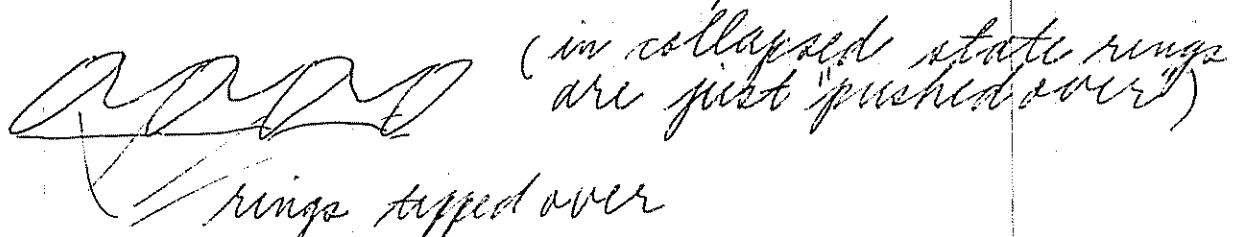 (in collapsed state rings
are just "pushed over")
rings tipped over